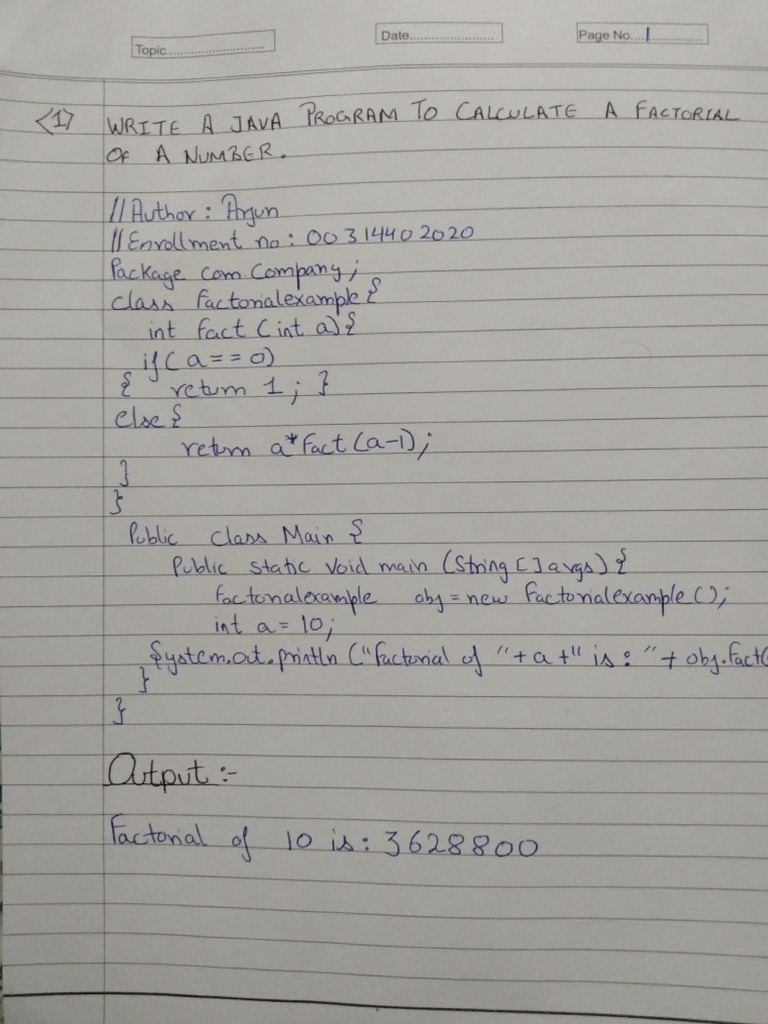 Topic..............................
Date..........................
Page No....1...............
<1> WRITE A JAVA PROGRAM TO CALCULATE A FACTORIAL
OF A NUMBER.
//Author : Arjun
//Enrollment no : 00314402020
Package com.Company;
class Factorialexample {
int fact (int a){
if( a==0)
{ return 1; }
else {
return a*fact(a-1);
}
}
Public class Main {
Public static void main (String []args) {
factorialexample obj = new Factorialexample ();
int a = 10;
System.out.println ("factorial of "+a+" is : "+ obj.fact(
}
}
Output :-
Factorial of 10 is: 3628800